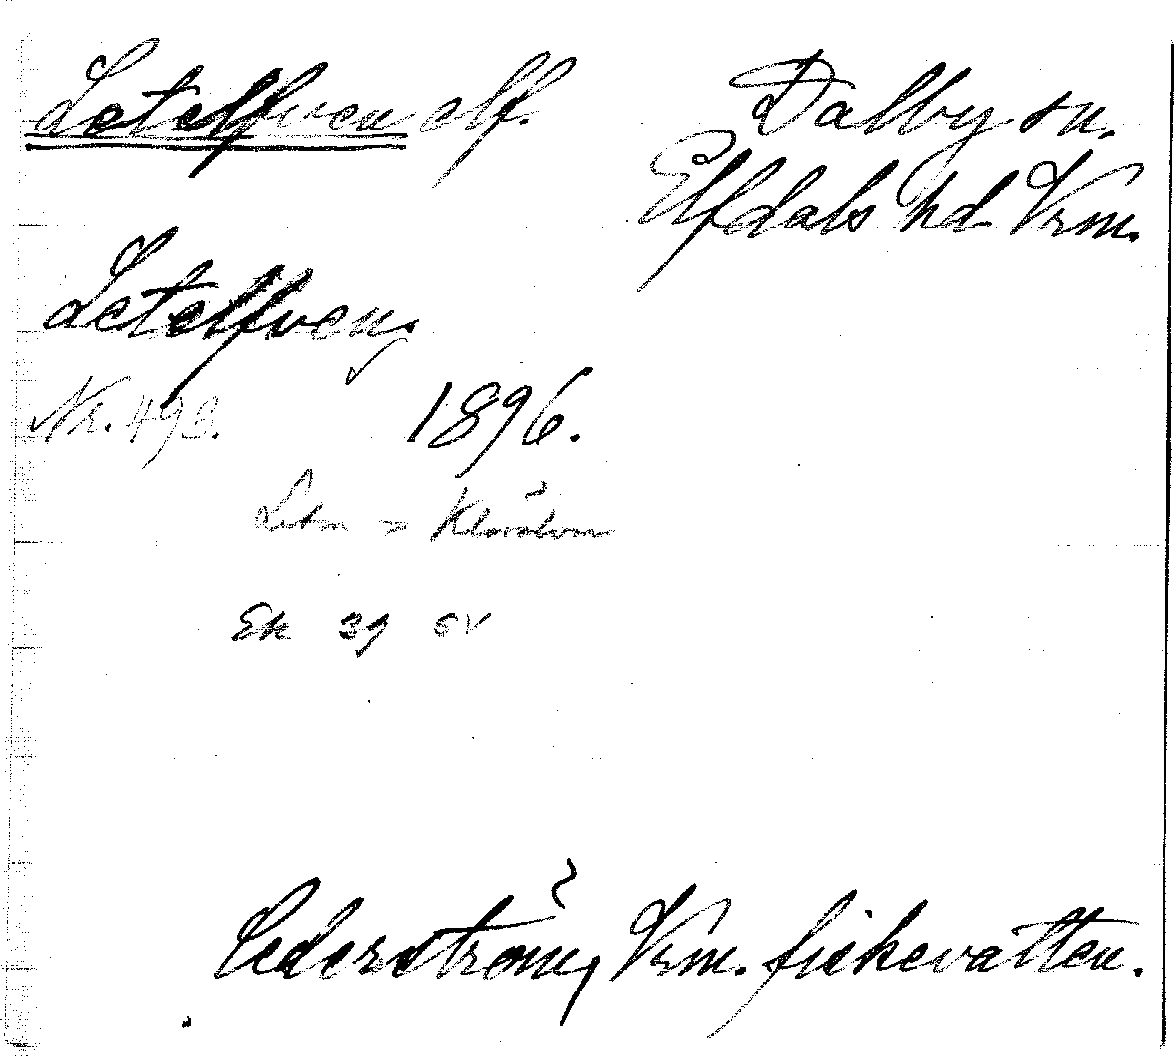 Letelfven elf.
Dalby sn.
Elfdals hd Vrm.
Letelfven,
Nr. 493.
1896.
= Klarälven
Ek 39 SV
Cederström, Vrm. fiskevatten.